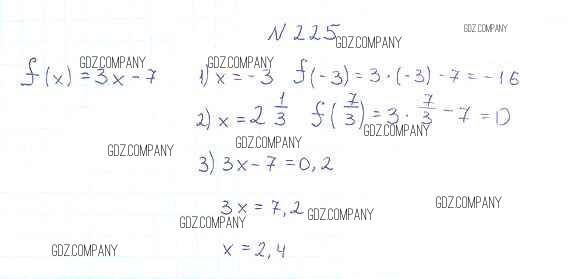 N 225
GDZ.COMPANY
GDZ.COMPANY
f(x) = 3x - 7
GDZ.COMPANY
GDZ.COMPANY
1) x = -3 f(-3) = 3 · (-3) - 7 = -16
2) x = 2 1/3 f(7/3) = 3 · 7/3 - 7 = 0
GDZ.COMPANY
GDZ.COMPANY
GDZ.COMPANY
3) 3x - 7 = 0,2
3x = 7,2
GDZ.COMPANY
GDZ.COMPANY
GDZ.COMPANY
x = 2,4
GDZ.COMPANY